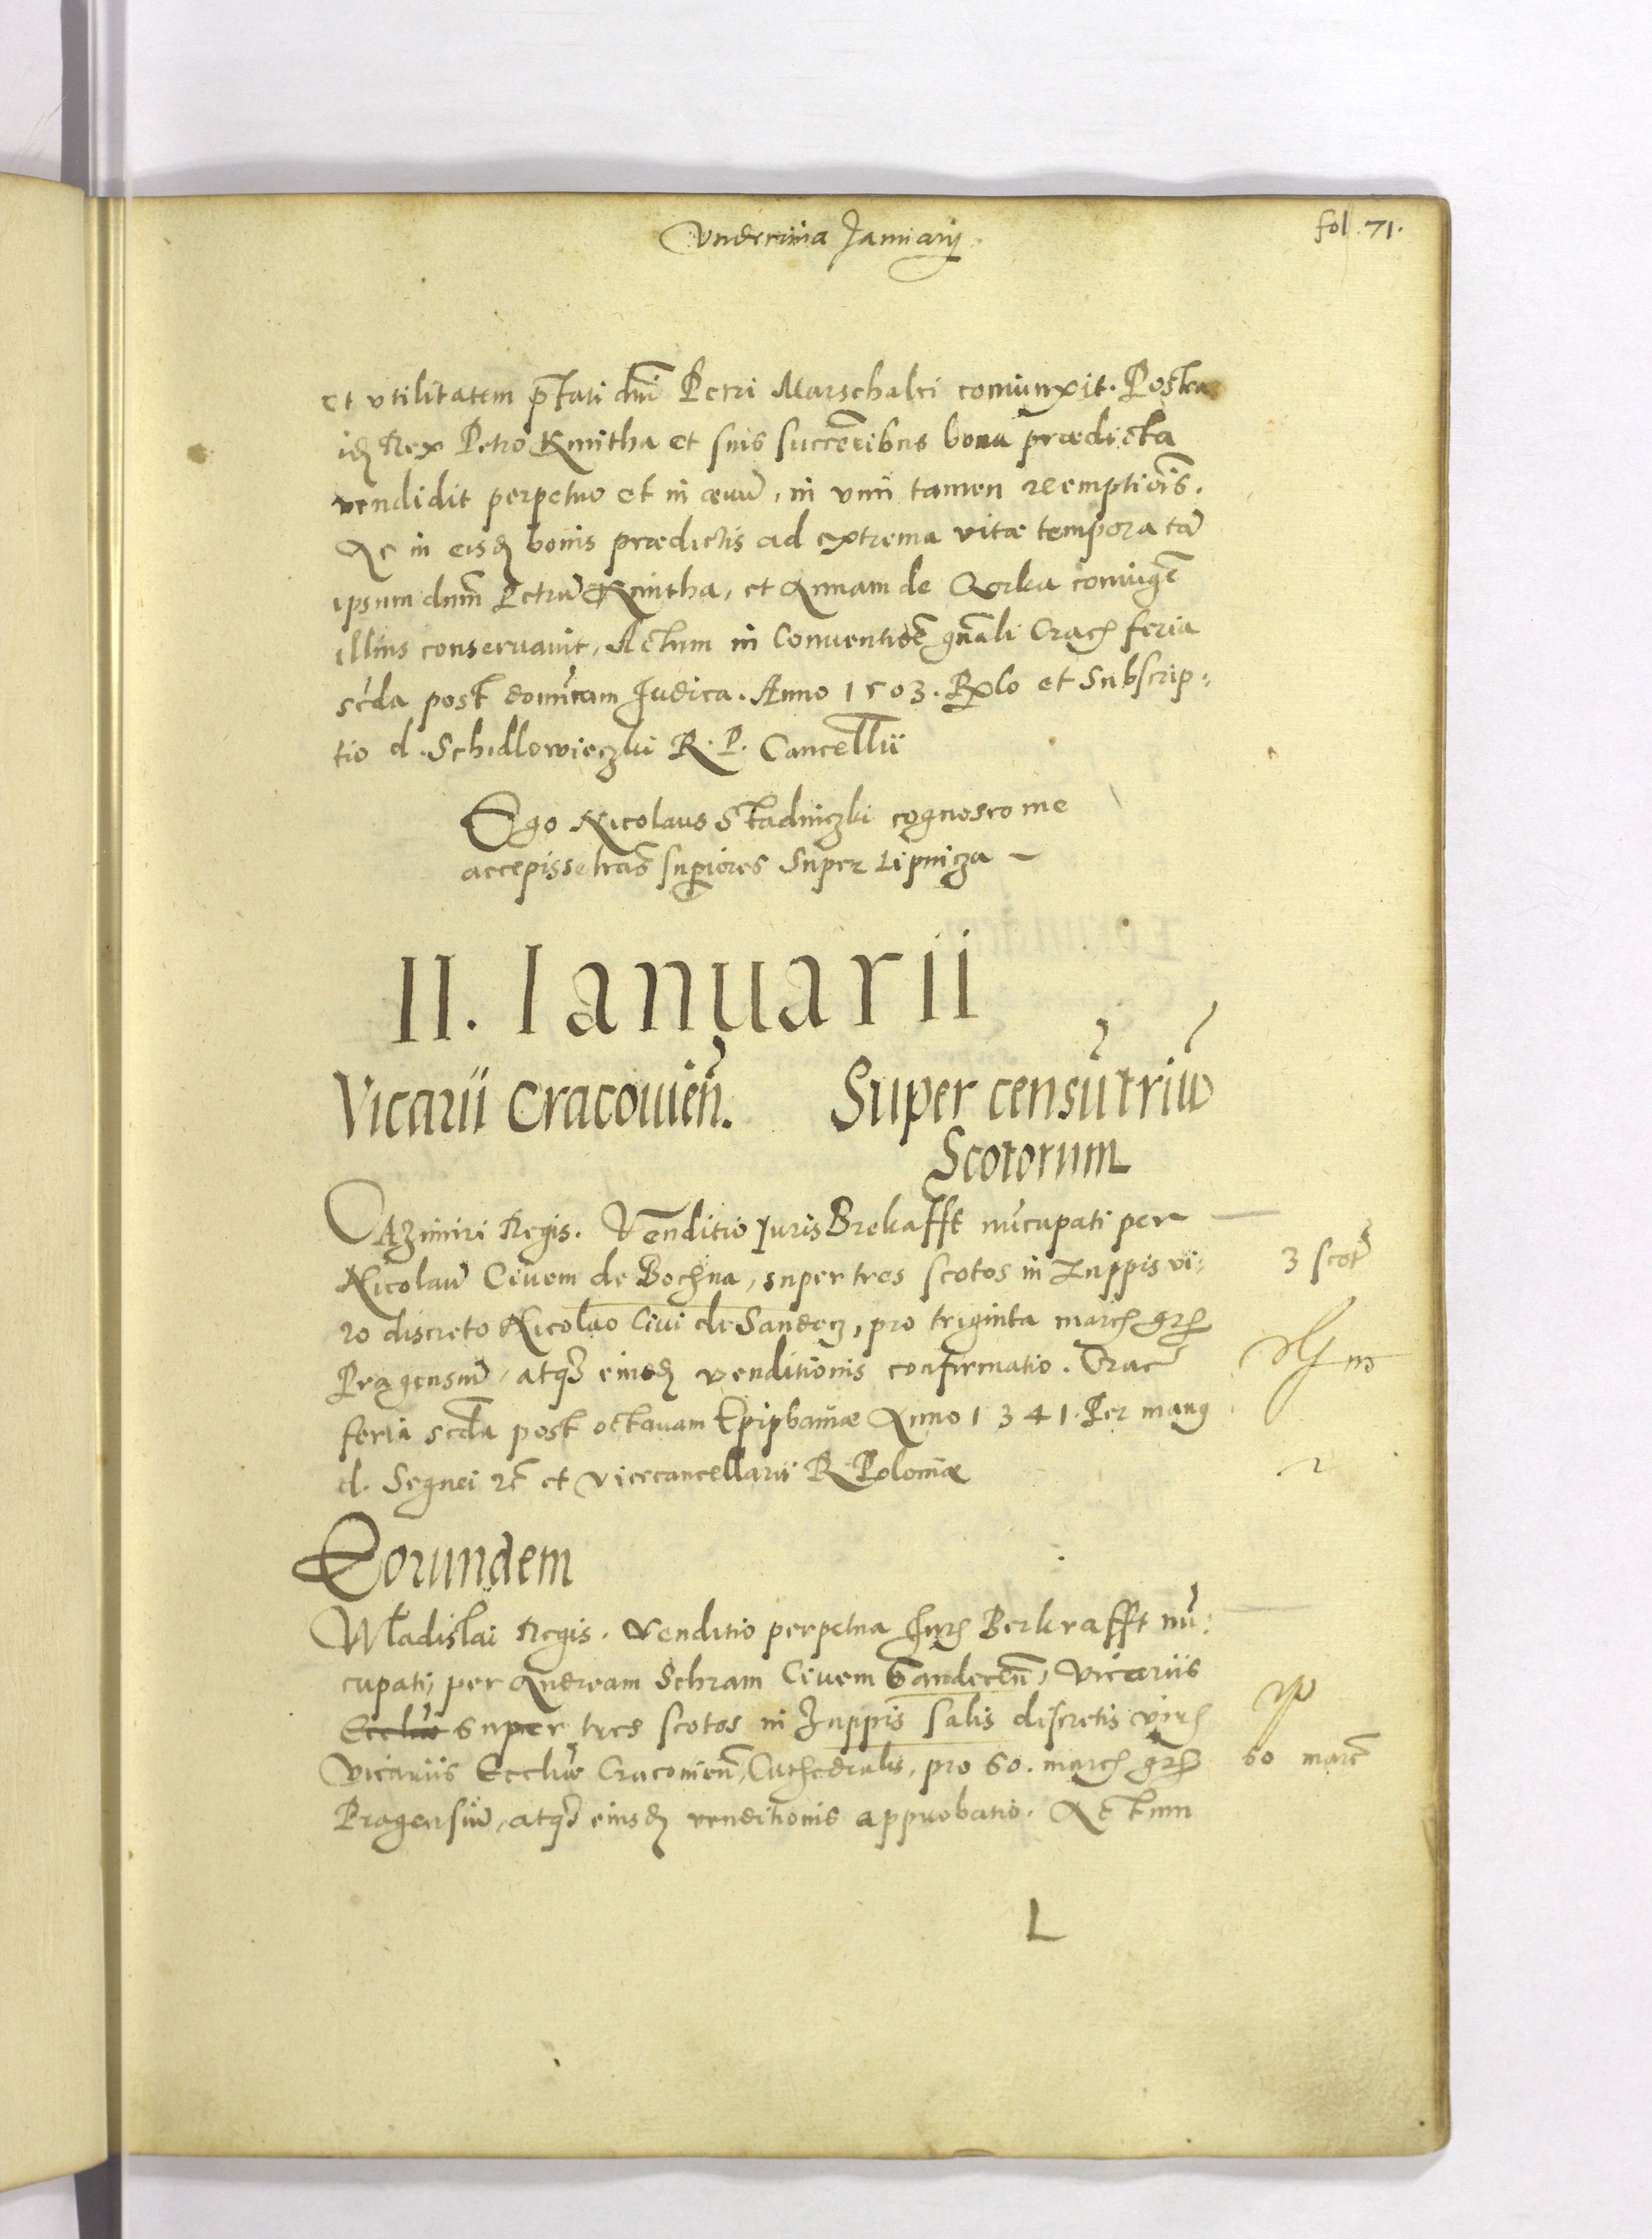 Vndecima Januarij
fol. 71.
et vtilitatem p̄fati dn̄i Petri Marschalci coniunxit. Postea
idē Rex Petro Kmitha et suis succōribus bona prædicta
vendidit perpetuo et in æuū, in vim tamen reemptiōis.
Ac in eisdē bonis prædictis ad extrema vitæ tempora tā
ipsum dn̄m Petrū Kmitha, et Annam de Gorka coniugē
illius conseruauit, Actum in Conuentiōe gn̄ali Crac̄ feria
sc̄da post domīcam Judica. Anno 1503. Rx̄lo et Subscrip:
tio d. Schidlowieczki R. P. Cancell̄ii
Ego Nicolaus Stadniczki cognosco me
accepisse lr̄as supiores Super Lipnicza
II. Ianuarii
Vicarii Cracouień. Super censū triū
Scotorum
CAzimiri Regis. Venditio Juris Brekafft nūcupati per
Nicolaū Ciuem de Bochna, super tres scotos in Zuppis vi:
3 scot̄
ro discreto Nicolao Ciui de Sandecz, pro triginta marc̄ gr̄
Pragensiū, atq̄ eiusdē venditionis confirmatio. Crac̄
feria sc̄da post octauam Epiphaniæ Anno 1341. Per man9
d. Segnei et vicecancellarii R. Poloniæ
Eorundem
Wladislai Regis. Venditio perpetua Jur̄ Berkrafft nū:
cupati, per Andream Schram Ciuem Sandecen̄, Vicariis
Eccl̄iæ super tres scotos in Zuppis salis discretis vir̄
Vicariis Eccl̄iæ Cracouien̄, Cathedralis, pro 60. marc̄ gr̄
60 marc̄
Pragensiū, atq̄ eiusdē venditionis approbatio. Actum
L